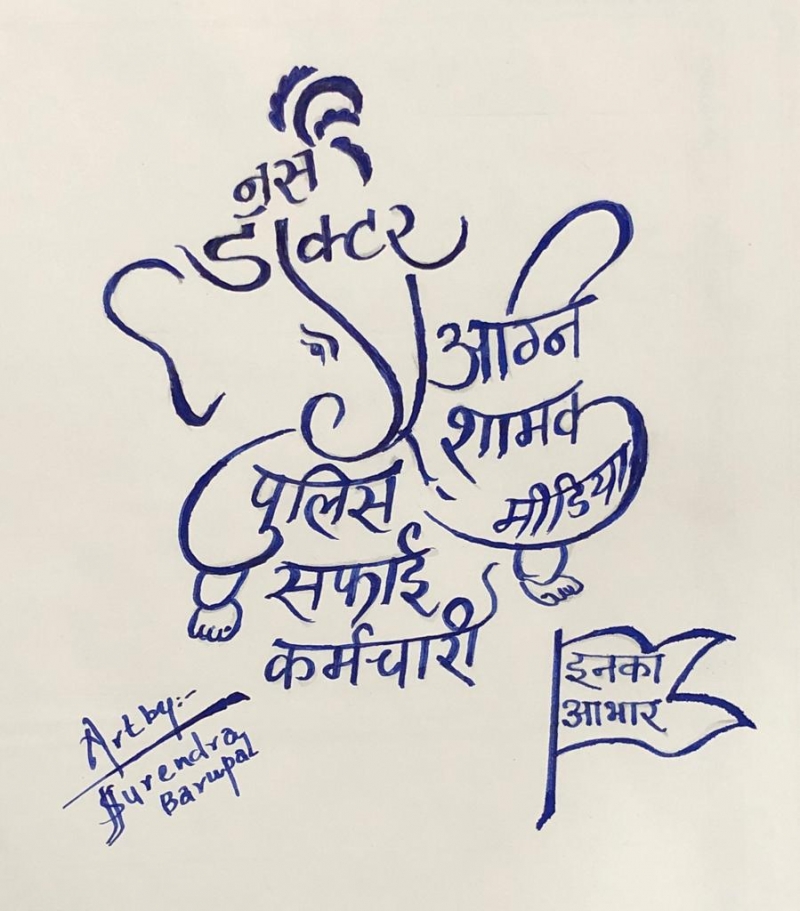 नर्स
डॉक्टर
को
अग्नि
शामक
मीडिया
पुलिस
सफाई
कर्मचारी
इनका
आभार
Art by:-
Surendra
Barupal